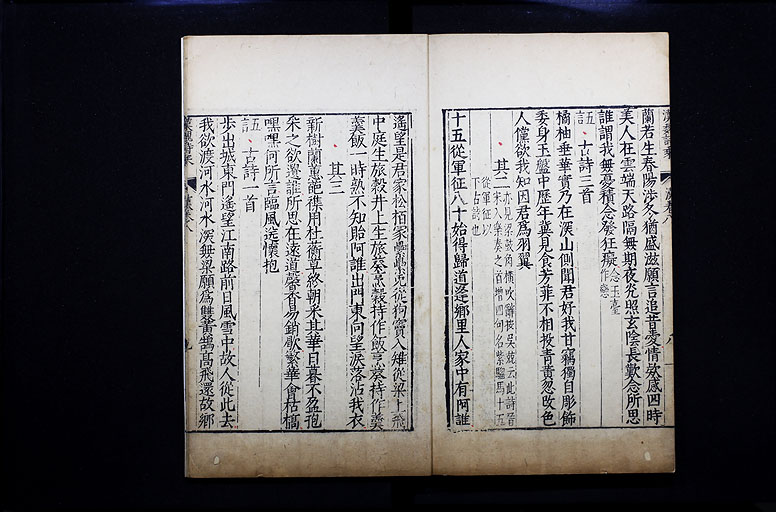 蘭若生春陽涉冬猶盛滋願言追昔愛情欵感四時
美人在雲端天路隔無期夜光照玄陰長歎念所思
誰謂我無憂積念發狂癡
五言古詩三首
橘柚垂華實乃在深山側聞君好我甘竊獨自彫飾
委身玉盤中歷年冀見食芳菲不相投青黃忽改色
人儻欲我知因君為羽翼
其二
十五從軍征八十始得歸道逢鄉里人家中有阿誰
遙望是君家松栢冢纍纍兔從狗竇入雉從梁上飛
中庭生旅穀井上生旅葵烹穀持作飯烹葵持作羹
羹飯一時熟不知貽阿誰出門東向望淚落沾我衣
其三
新樹蘭蕙葩襍用杜蘅草終朝采其華日暮不盈抱
采之欲遺誰所思在遠道馨香易銷歇繁華會枯槁
嘿嘿何所言臨風送懷抱
五言古詩一首
步出城東門遙望江南路前日風雪中故人從此去
我欲渡河水河水深無梁願為雙黃鵠高飛還故鄉